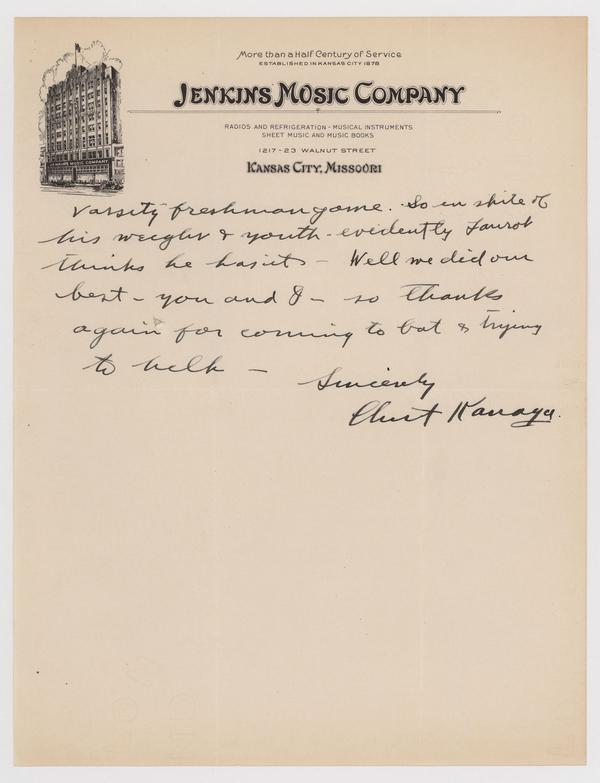 More than a Half Century of Service
ESTABLISHED IN KANSAS CITY 1878
JENKINS MUSIC COMPANY
RADIOS AND REFRIGERATION - MUSICAL INSTRUMENTS
SHEET MUSIC AND MUSIC BOOKS
1217-23 WALNUT STREET
KANSAS CITY, MISSOURI
JENKINS MUSIC COMPANY
varsity freshman game. So in spite of
his weight & youth - evidently Faurot
thinks he has its - Well we did our
best - you and I - so thanks
again for coming to bat & trying
to help -
Sincerely